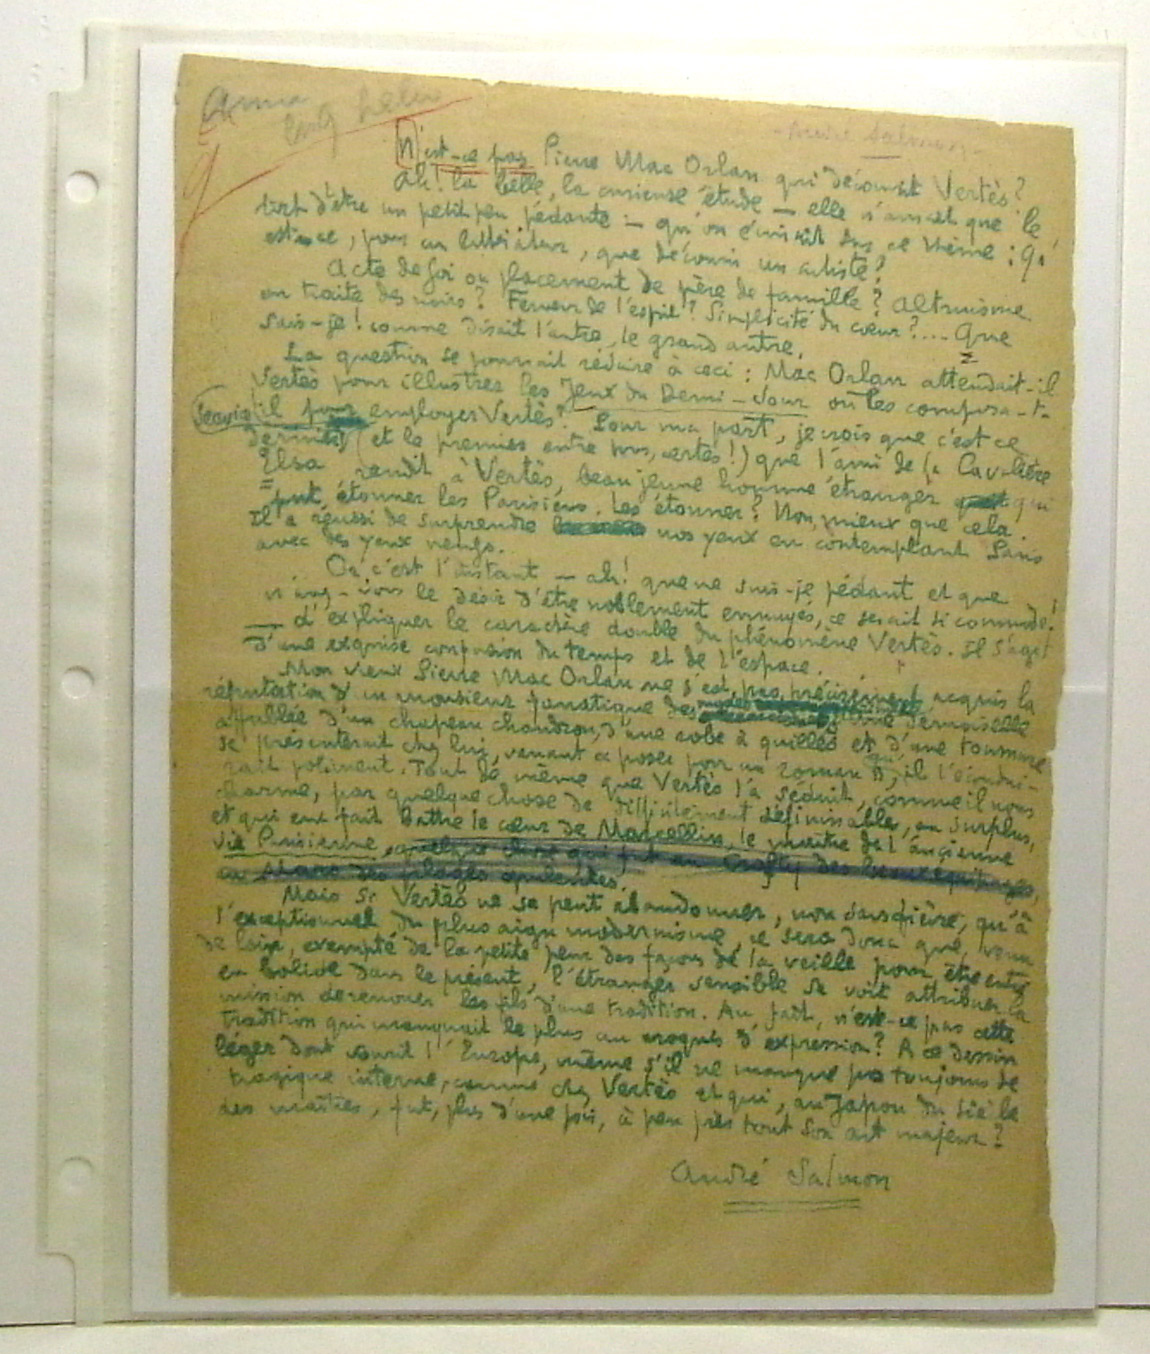 Anna
- André Salmon -
N'est-ce pas Pierre Mac Orlan qui découvrit Vertès ?
Ah! la belle, la curieuse étude — elle n'aurait que le
tort d'être un petit peu pédante — qu'on écrirait sur ce thème : Q
est-ce, pour un littérateur, que découvrir un artiste ?
Acte de foi ou placement de père de famille ? Altruisme
ou traite des noirs ? Ferveur de l'esprit ? Simplicité du cœur ?... Que
sais-je ! comme disait l'autre, le grand autre.
La question se pourrait réduire à ceci : Mac Orlan attendait-il
Vertès pour illustrer les Jeux du Demi-Jour ou les composa-t-
il pour employer Vertès ? Pour ma part, je crois que c'est ce
dernier (et le premier entre nous, certes !) que l'ami de la Cavalière
Elsa rendit à Vertès, beau jeune homme étranger qui
put étonner les Parisiens. Les étonner ? Non, mieux que cela.
Il a réussi de surprendre nos yeux en contemplant Paris
avec des yeux neufs.
Or, c'est l'instant — ah! que ne suis-je pédant et que
n'avez-vous le désir d'être noblement ennuyés, ce serait si commode !
— d'expliquer le caractère double du phénomène Vertès. Il s'agit
d'une exquise confusion du temps et de l'espace.
Mon vieux Pierre Mac Orlan ne s'est pas précisément acquis la
réputation d'un monsieur fanatique des modes Une demoiselle
affublée d'un chapeau chaudron, d'une robe à quilles et d'une tournure
se présenterait chez lui, venant à poser pour un roman, il l'écondui-
rait poliment. Tout de même que Vertès l'a séduit, comme il nous
charme, par quelque chose de difficilement définissable, au surplus,
et qui eut fait battre le cœur de Marcellin, le maître de l'ancienne
Vie Parisienne, quelque chose qui fut au Crafty des beaux équipages,
au Mars des plages opulentes.
Mais si Vertès ne se peut abandonner, non sans fièvre, qu'à
l'exceptionnel du plus aigu modernisme, ce sera donc que, venu
de loin, exempté de la petite peur des façons de la veille pour être entré
en bolide dans le présent, l'étranger sensible se voit attribuer la
mission de renouer les fils d'une tradition. Au fait, n'est-ce pas cette
tradition qui manquait le plus au croquis d'expression ? A ce dessin
léger dont sourit l'Europe, même s'il ne manque pas toujours de
tragique interne, comme chez Vertès et qui, au Japon du siècle
des maîtres, fut, plus d'une fois, à peu près tout son art majeur ?
André Salmon